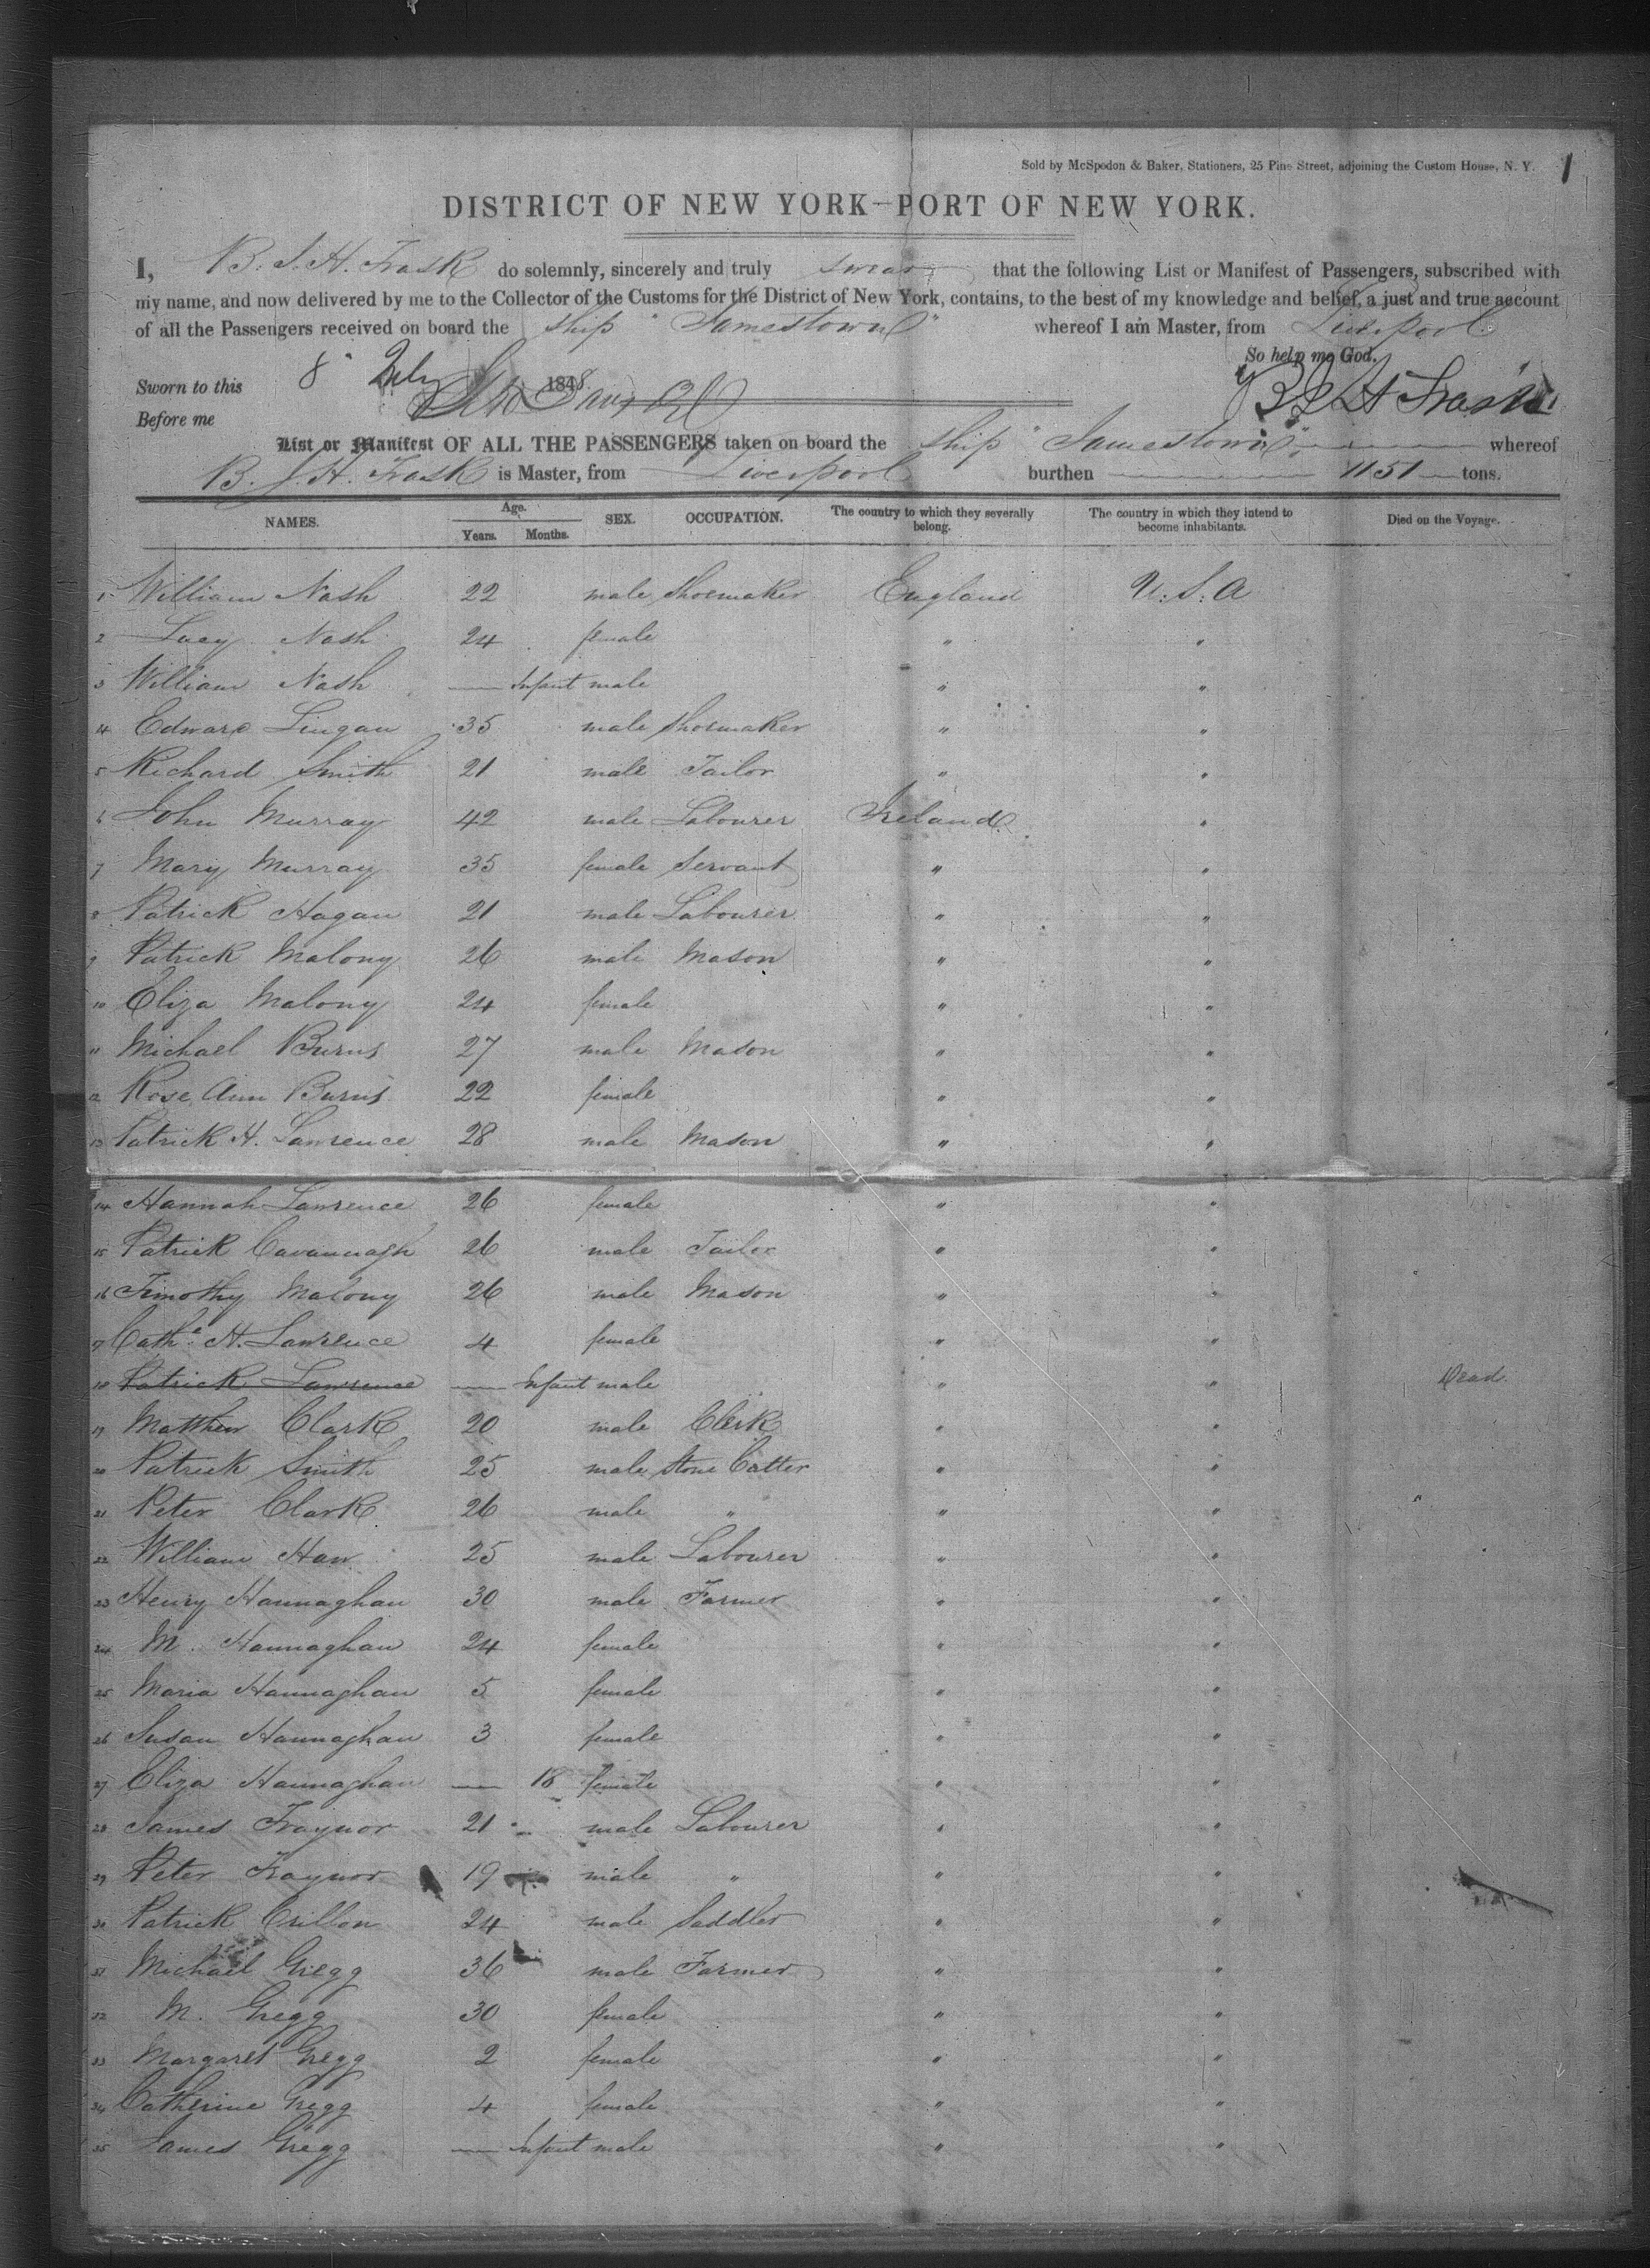 Sold by McSpedon & Baker, Stationers, 25 Pine Street, adjoining the Custom House, N. Y. 1
DISTRICT OF NEW YORK—PORT OF NEW YORK.
I, B. J. H. Trask do solemnly, sincerely and truly swear that the following List or Manifest of Passengers, subscribed with
my name, and now delivered by me to the Collector of the Customs for the District of New York, contains, to the best of my knowledge and belief, a just and true account
of all the Passengers received on board the ship "Jamestown" whereof I am Master, from Liverpool
So help me God.
Sworn to this 8" July 1848. B J H Trask
Before me
List or Manifest OF ALL THE PASSENGERS taken on board the ship "Jamestown" whereof
B. J. H. Trask is Master, from Liverpool burthen 1151 tons.
NAMES. Age. Years. Months. SEX. OCCUPATION. The country to which they severally belong. The country in which they intend to become inhabitants. Died on the Voyage.
1 William Nash 22 male Shoemaker England U.S.A
2 Lucy Nash 24 female " "
3 William Nash — Infant male " "
4 Edward Lingan 35 male Shoemaker " "
5 Richard Smith 21 male Tailor " "
6 John Murray 42 male Labourer Ireland "
7 Mary Murray 35 female Servant " "
8 Patrick Hagan 21 male Labourer " "
9 Patrick Malony 26 male Mason " "
10 Eliza Malony 24 female " "
11 Michael Burns 27 male Mason " "
12 Rose Ann Burns 22 female " "
13 Patrick H. Lawrence 28 male Mason " "
14 Hannah Lawrence 26 female " "
15 Patrick Cavannagh 26 male Tailor " "
16 Timothy Malony 26 male Mason " "
17 Cathe. H. Lawrence 4 female " "
18 Patrick Lawrence — Infant male " " Dead.
19 Matthew Clark 20 male Clerk " "
20 Patrick Smith 25 male Stone Cutter " "
21 Peter Clark 26 male " " "
22 William Haw 25 male Labourer " "
23 Henry Hannaghan 30 male Farmer " "
24 M. Hannaghan 24 female " "
25 Maria Hannaghan 5 female " "
26 Susan Hannaghan 3 female " "
27 Eliza Hannaghan — 18 female " "
28 James Traynor 21 male Labourer " "
29 Peter Traynor 19 male " " "
30 Patrick Crillon 24 male Saddler " "
31 Michael Gregg 36 male Farmer " "
32 M. Gregg 30 female " "
33 Margaret Gregg 2 female " "
34 Catherine Gregg 4 female " "
35 James Gregg — Infant male " "